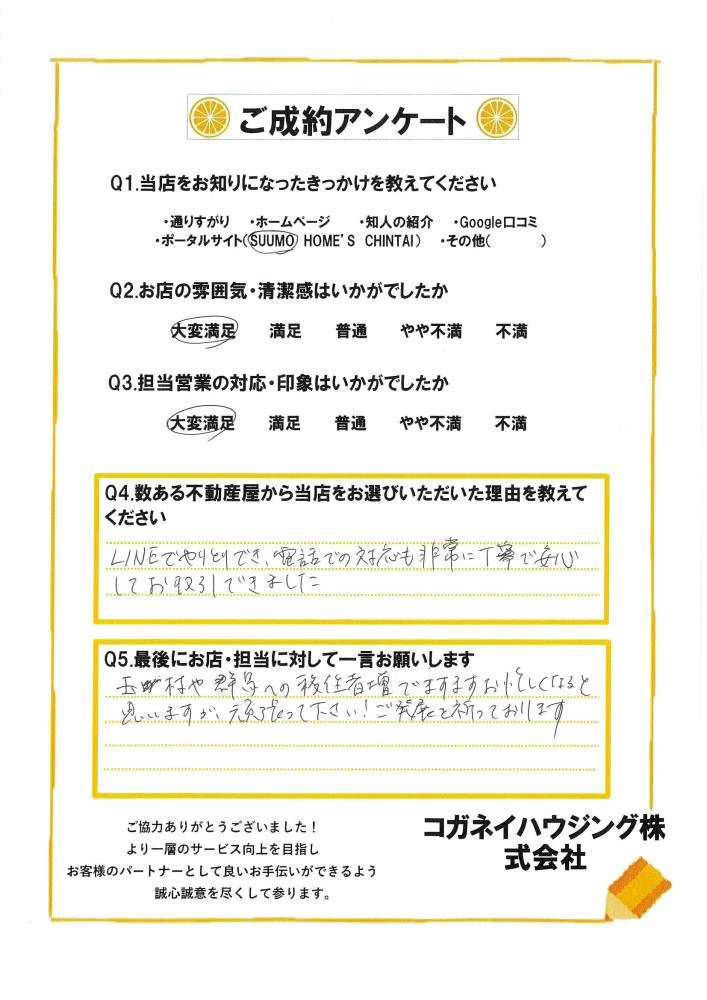 ご成約アンケート
Q1.当店をお知りになったきっかけを教えてください
・通りすがり ・ホームページ ・知人の紹介 ・Google口コミ
・ポータルサイト(SUUMO HOME'S CHINTAI) ・その他( )
Q2.お店の雰囲気・清潔感はいかがでしたか
大変満足 満足 普通 やや不満 不満
Q3.担当営業の対応・印象はいかがでしたか
大変満足 満足 普通 やや不満 不満
Q4.数ある不動産屋から当店をお選びいただいた理由を教えて
ください
LINEでやりとりでき、電話での対応も非常に丁寧で安心
してお取引できました
Q5.最後にお店・担当に対して一言お願いします
村や群馬への移住者増でますますお忙しくなると
思いますが、頑張って下さい!ご発展を祈っております
ご協力ありがとうございました!
より一層のサービス向上を目指し
お客様のパートナーとして良いお手伝いができるよう
誠心誠意を尽くして参ります。
コガネイハウジング株
式会社